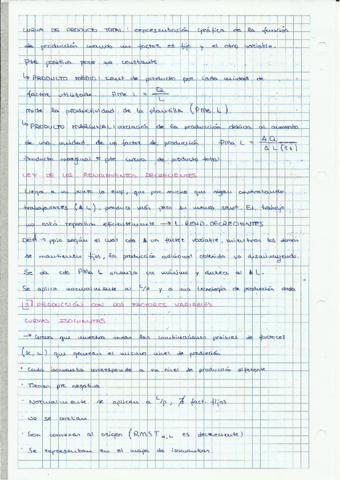 CURVA DE PRODUCTO TOTAL: representación gráfica de la función
de producción cuando un factor es fijo y el otro variable.
Pte positiva pero no constante
↳ PRODUCTO MEDIO: cant de producto por cada unidad de
factor utilizado PMe L = Q/L
Mide la productividad de la plantilla (PMe L)
↳ PRODUCTO MARGINAL: variación de la producción debida al aumento
de una unidad de un factor de producción PMa L = ΔQ/ΔL
Producto marginal = pte curva de producto total.
LEY DE LOS RENDIMIENTOS DECRECIENTES
Llega a un punto la emp, que por mucho que sigan contratando
trabajadores (↑L), produce
no está repartido eficientemente → L. REND. DECRECIENTES
Def → ppio según el cual cdo ↑ un factor variable, mientras los demás
se mantienen fijos, la producción adicional obtenida va disminuyendo.
Se da cdo PMa L alcanza un máximo y decrece al ↑L.
Se aplica normalmente al c/p y a una tecnología de producción dada
[3] PRODUCCIÓN CON DOS FACTORES VARIABLES
CURVAS ISOCUANTAS
→ Curva que muestra todas las combinaciones posibles de factores
(K, L) que generan el mismo nivel de producción
· Cada isocuanta corresponde a un nivel de producción diferente
· Tienen pte negativa
· Normalmente se aplican a L/p, ∄ fact. fijos
· No se cortan
· Son convexas al origen (RMST K,L es decreciente)
· Se representan en el mapa de isocuantas.